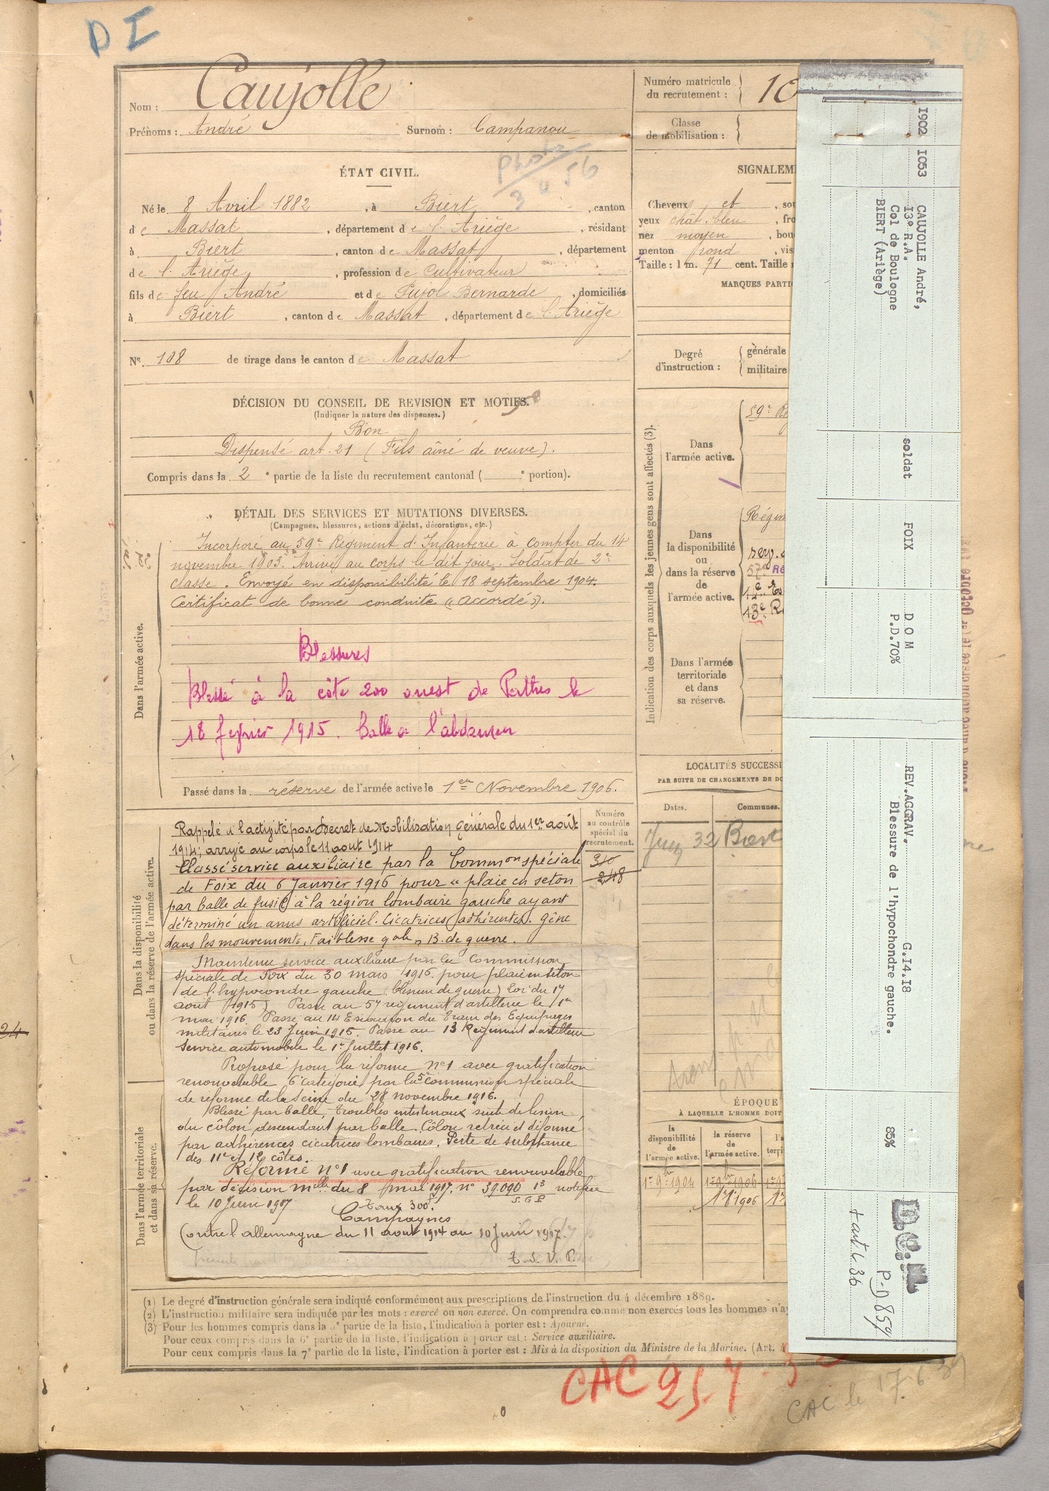 D I
Nom : Caujolle
Prénoms : André Surnom : Campanou
Photo
3 56
ÉTAT CIVIL.
Né le 8 Avril 1882, à Biert, canton
de Massat, département de l'Ariège, résidant
à Biert, canton de Massat, département
de l'Ariège, profession de Cultivateur
fils de feu André et de Pujol Bernarde, domiciliés
à Biert, canton de Massat, département de l'Ariège
N° 108 de tirage dans le canton de Massat
DÉCISION DU CONSEIL DE REVISION ET MOTIFS.
(Indiquer la nature des dispenses.)
Bon
Dispensé art. 21 (Fils aîné de veuve).
Compris dans la 2e partie de la liste du recrutement cantonal ( e portion).
DÉTAIL DES SERVICES ET MUTATIONS DIVERSES.
(Campagnes, blessures, actions d'éclat, décorations, etc.)
Dans l'armée active.
Incorporé au 59e Régiment d'Infanterie à compter du 14
novembre 1903. Arrivé au corps le dit jour. Soldat de 2e
classe. Envoyé en disponibilité le 18 septembre 1904.
Certificat de bonne conduite "Accordé".
Blessures
Blessé à la côte 200 ouest de Perthes le
18 fevrier 1915. Balle à l'abdomen
Passé dans la réserve de l'armée active le 1er Novembre 1906.
Dans la disponibilité
ou dans la réserve de l'armée active.
Numéro
au contrôle
spécial du
recrutement.
310
248
Rappelé à l'activité par Décret de Mobilisation Générale du 1er août
1914; arrivé au corps le 11 août 1914
Classé service auxiliaire par la Common spéciale
de Foix du 6 Janvier 1916 pour "plaie en seton
par balle de fusil à la région lombaire gauche ayant
déterminé un anus artificiel. Cicatrices adhérentes, gêne
dans les mouvements, Faiblesse gale, B. de guerre.
Maintenu service auxiliaire par la Commission
spéciale de Foix du 30 mars 1916 pour plaie en séton
de l'hypocondre gauche (blessure de guerre) loi du 17
août 1915) Passé au 57 régiment d'artillerie le 1er
mai 1916. Passé au 14 Escadron du Train des Equipages
militaires le 23 Juin 1916. Passé au 13 Régiment d'artillerie
service automobile le 1er Juillet 1916.
Proposé pour la réforme n°1 avec gratification
renouvelable 6 catégorie par la 3e commission spéciale
de réforme de la Seine du 28 novembre 1916.
Blessé par balle. Troubles intestinaux suite de lésion
du côlon descendant par balle. Côlon rétréci et déformé
par adhérences cicatrices lombaires. Perte de substance
des 11e et 12 côtes.
Réformé N°1 avec gratification renouvelable
par décision mlle du 8 mai 1917, n° 39090 notifiée
le 10 Juin 1917 Taux 300f.
Campagnes
Contre l'allemagne du 11 août 1914 au 10 Juin 1917.
T. S. V. P.
Dans l'armée territoriale
et dans sa réserve.
Numéro matricule
du recrutement : 10
Classe
de mobilisation :
SIGNALEM
Cheveux et , sou
yeux chat. bleu, fro
nez moyen, bou
menton rond, vis
Taille : 1 m. 71 cent. Taille
MARQUES PARTI
Degré
d'instruction :
générale
militaire
Indication des corps auxquels les jeunes gens sont affectés (3).
Dans
l'armée active.
59e R
Dans
la disponibilité
ou
dans la réserve
de
l'armée active.
Régim
serv. a
57e Ré
14e Es
13e R
Dans l'armée
territoriale
et dans
sa réserve.
LOCALITÉS SUCCESSI
PAR SUITE DE CHANGEMENTS DE DO
Dates. Communes.
Juin 32 Biert
ÉPOQUE
À LAQUELLE L'HOMME DOIT
la
disponibilité
de l'armée active.
la réserve
de
l'armée active.
1er 9bre 1904 1er 9bre 1906
1er 11 1906
1902 1053
CAUJOLLE André,
13° R.A.
Col de Boulogne
BIERT (Ariège)
soldat
FOIX
D O M
P.D.70%
REV.AGGRAV. G.14.18
Blessure de l'hypochondre gauche.
85%
+ art L 36
P.D 85%
(1) Le degré d'instruction générale sera indiqué conformément aux prescriptions de l'instruction du 4 décembre 1889.
(2) L'instruction militaire sera indiquée par les mots : exercé ou non exercé. On comprendra comme non exercés tous les hommes n'ay
(3) Pour les hommes compris dans la 5e partie de la liste, l'indication à porter est : Ajourné.
Pour ceux compris dans la 6e partie de la liste, l'indication à porter est : Service auxiliaire.
Pour ceux compris dans la 7e partie de la liste, l'indication à porter est : Mis à la disposition du Ministre de la Marine. (Art. 4
CAC 25.7
CAC le 17.6.39
24